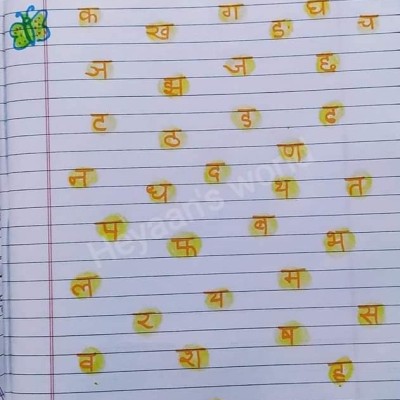 क ख ग ङ घ च
ञ झ ज छ
ट ठ ड ढ
न ध द ण थ त
प फ ब भ
Heyaan's world
ल र य म स
व श ष ह